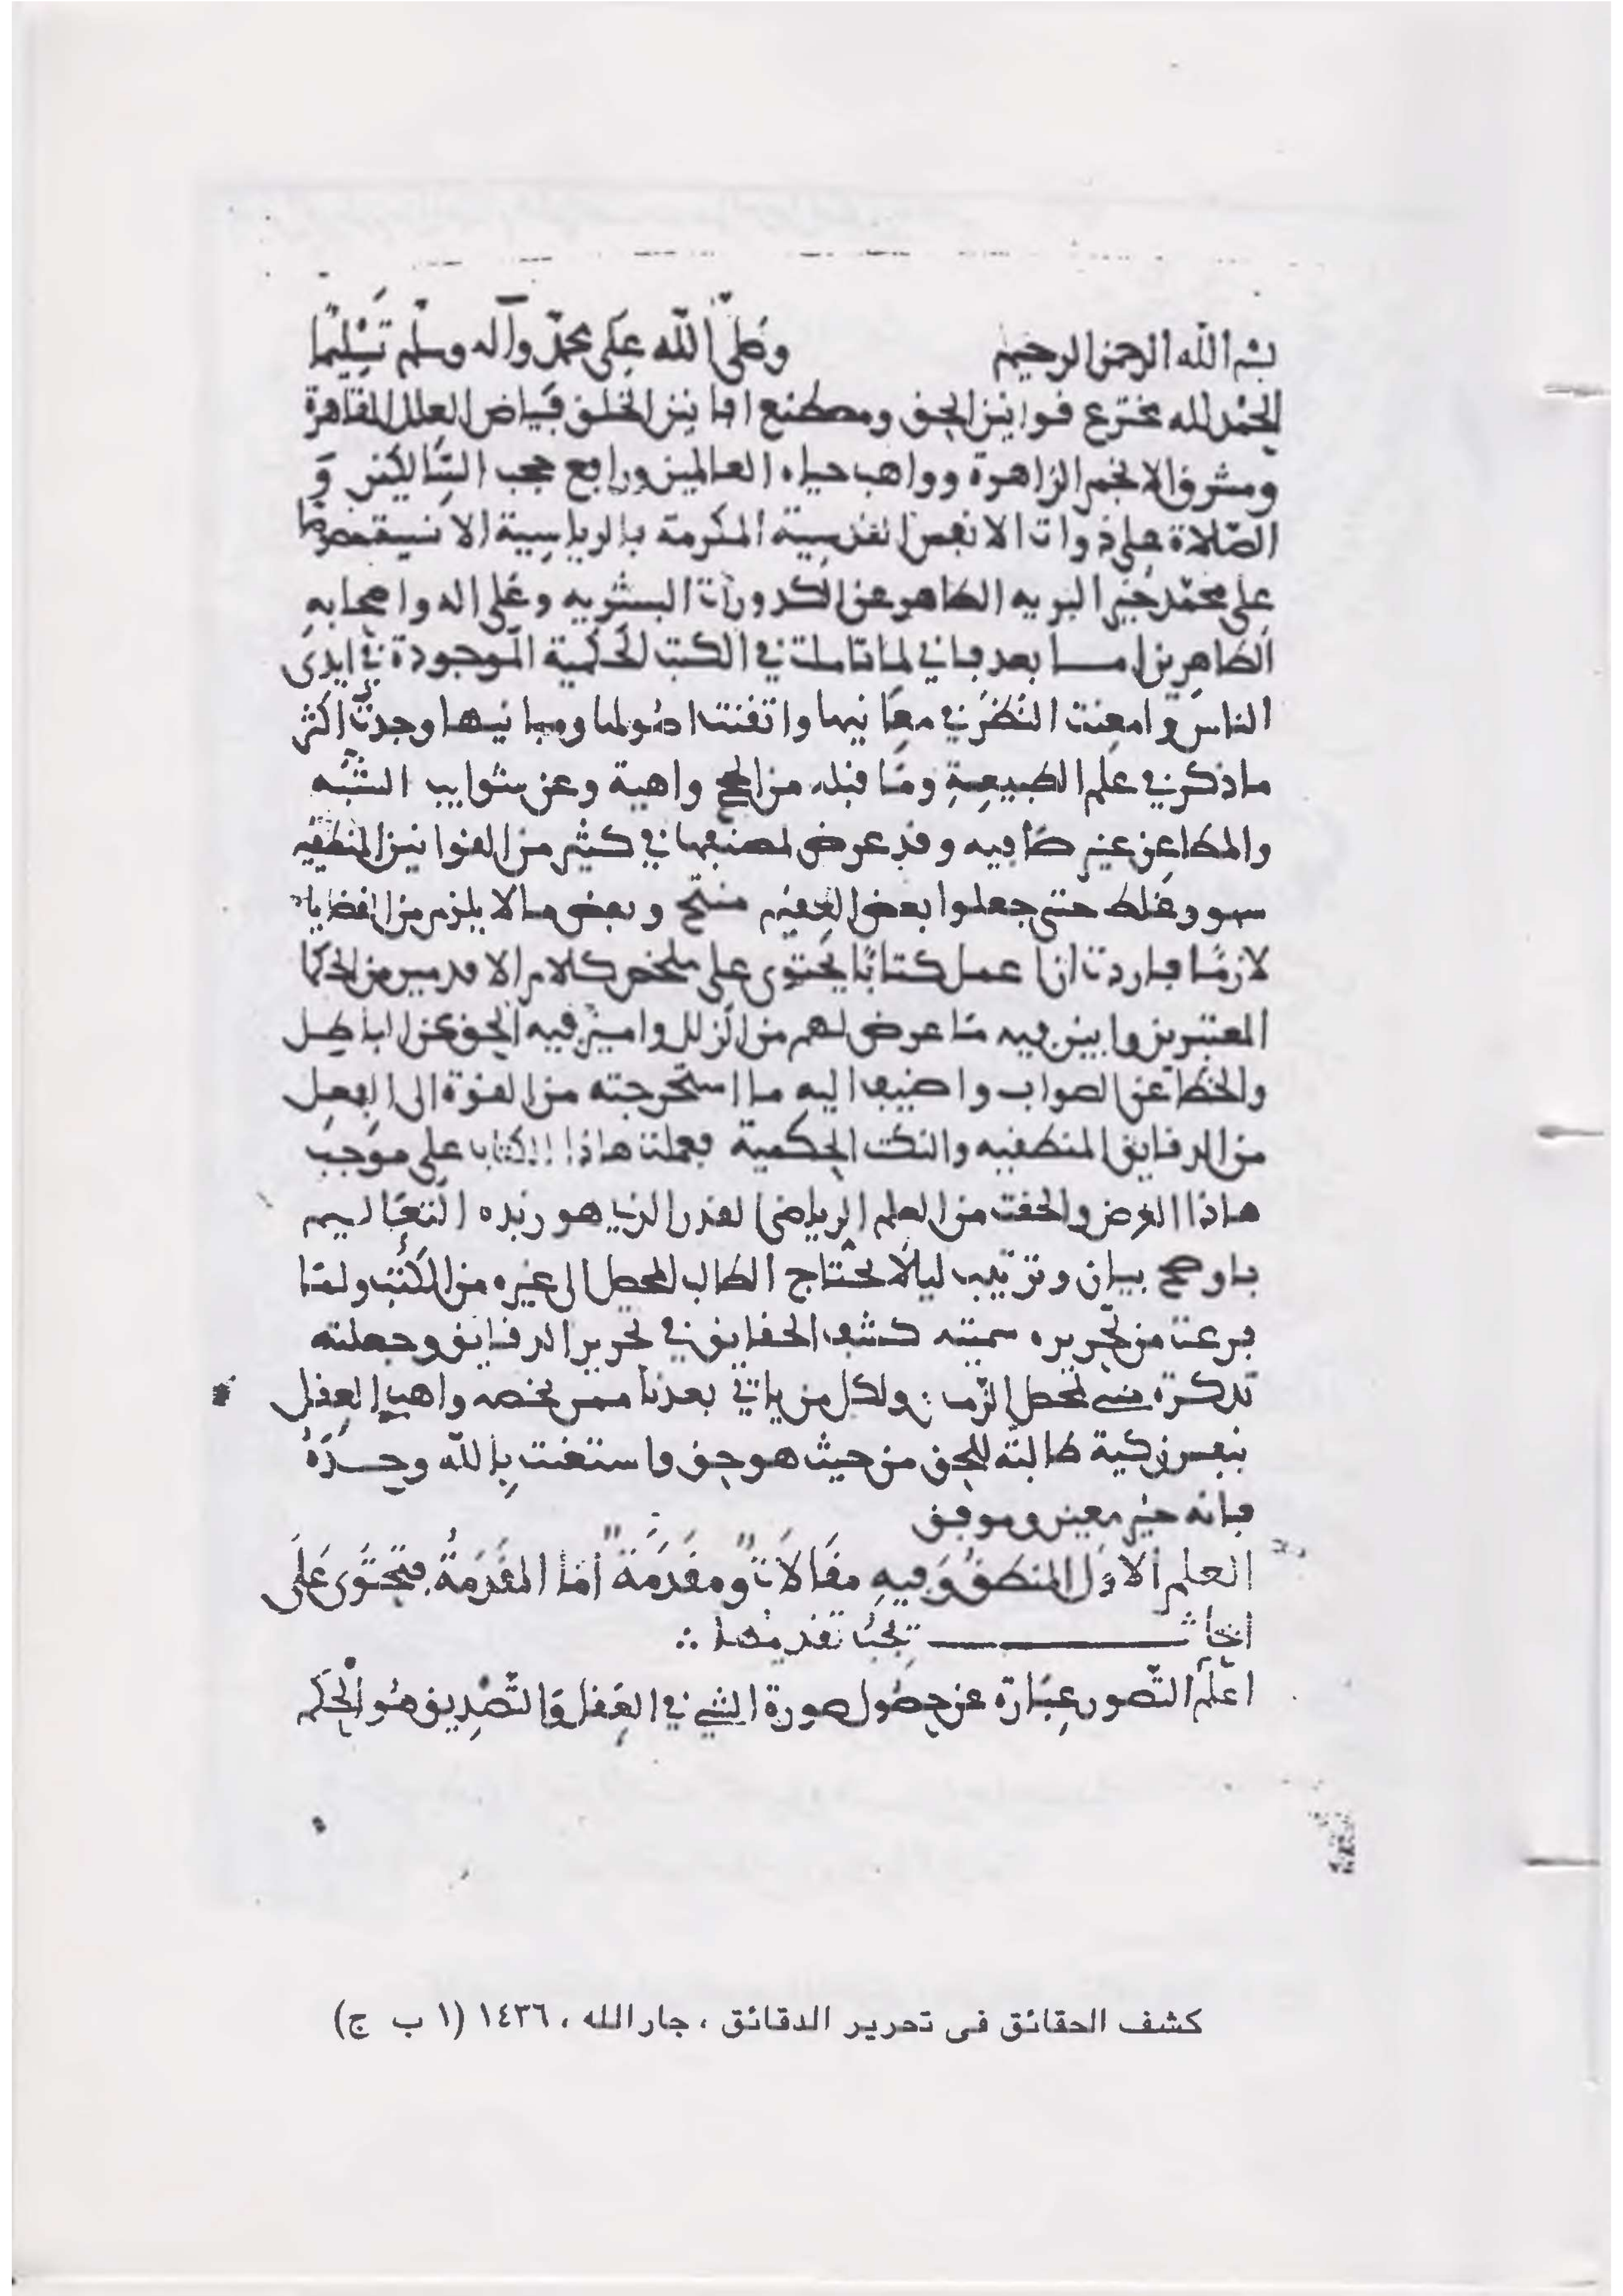 بسم الله الرحمن الرحيم وصلى الله على محمد وآله وسلم تسليما
الحمد لله مخترع قوانين الحق ومصطنع افانين الخلق فياض العلل القاهرة
ومشرق الانجم الزاهرة وواهب حياه العالمين ورافع حجب السالكين و
الصلاة على ذوات الانفس القدسية المكرمة بالرياسية الانسية خصوصا
على محمد خير البريه الطاهر عن الكدورات البشريه وعلى اله واصحابه
الطاهرين اما بعد فاني لما تاملت في الكتب الحكمية الموجودة في ايدى
الناس وامعنت النظر في معانيها واتقنت اصولها ومبانيها وجدت اكثر
ما ذكر في علم الطبيعة وما قبله من الحجج واهية وعن شوايب الشبه
والمطاعن غير صافيه وقد عرض لمصنفيها في كثير من القوانين المنطقيه
سهو وغلط حتى جعلوا بعض العقيم منتج وبعض ما لا يلزم من القضايا
لازما فاردت ان اعمل كتابا يحتوى على ملخص كلام الاقدمين من الحكما
المعتبرين وابين فيه ما عرض لهم من الزلل واميز فيه الحق عن الباطل
والخطا عن الصواب واضيف اليه ما استخرجته من القوة الى الفعل
من الدقايق المنطقيه والنكت الحكمية فعملت هاذا الكتاب على موجب
هاذا الغرض والحقت من العلم الرياضي القدر الذي هو زبده التعاليم
باوضح بيان وترتيب ليلا يحتاج الطالب المحصل الى غيره من الكتب ولما
فرغت من تحريره سميته كشف الحقايق في تحرير الدقايق وجعلته
تذكرة لمحصل ولكل من ياتي بعدنا ممن يخصه واهب العقل
بنفس زكية طالبة للحق من حيث هو حق واستعنت بالله وحده
فانه خير معين وموفق
العلم الاول المنطق وفيه مقالات ومقدمة اما المقدمة فتحتوى على
ابحاث يجب تقديمها ∴
اعلم التصور عبارة عن حصول صورة الشي في العقل والتصديق هو الحكم
كشف الحقائق فى تحرير الدقائق ، جار الله ، ١٤٣٦ (١ ب ج)